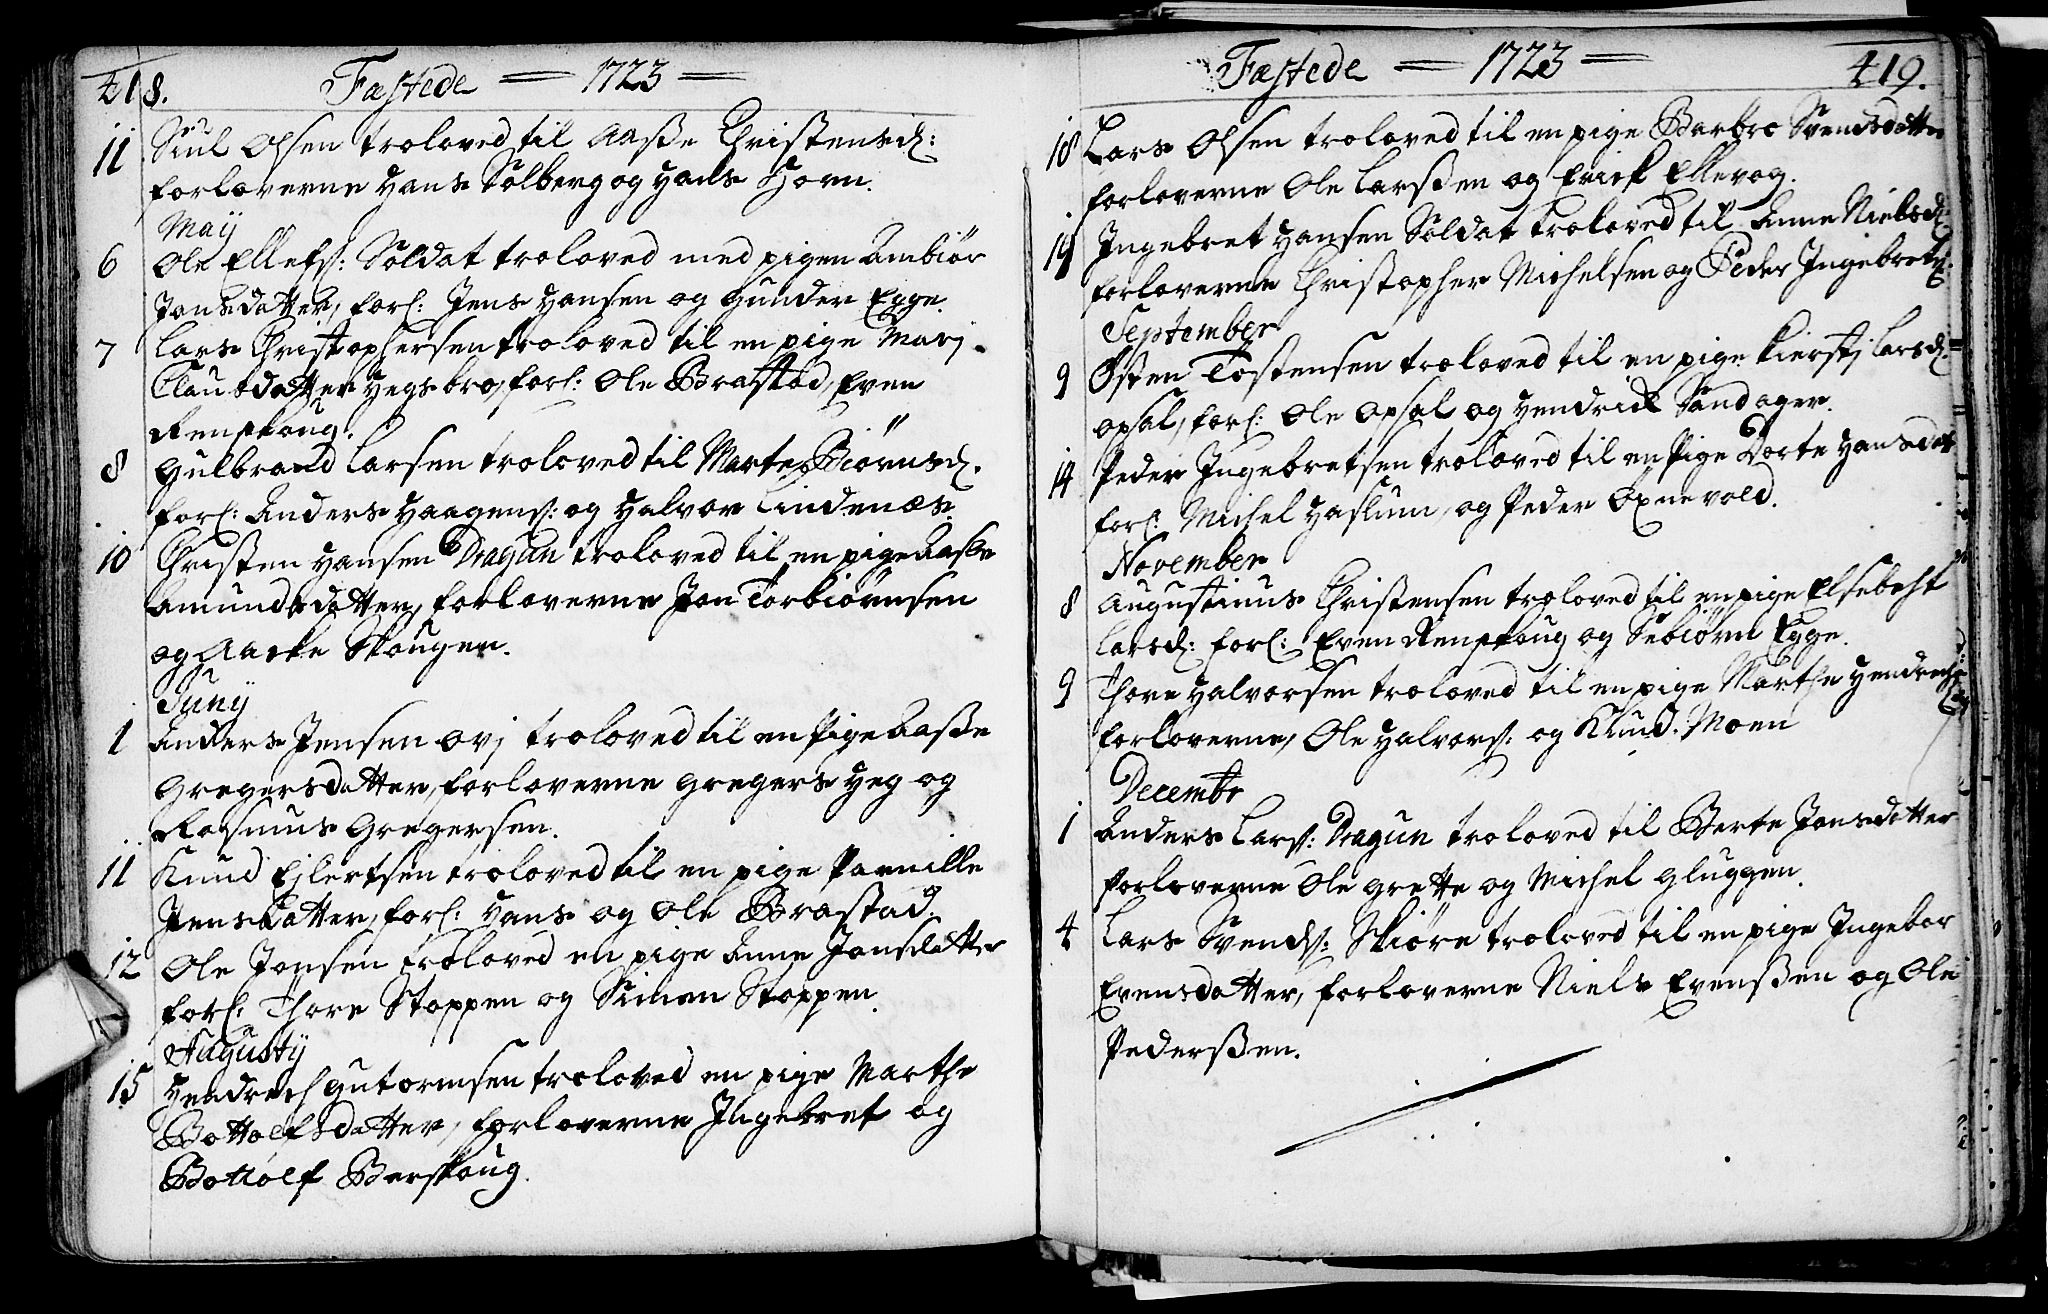 418. Fæstede — 1723 —
11 Siul Olsen troloved til Aaße Christensd:
forloverne Hans Solberg og Hans Horn.
May
6 Ole Ellefs: Soldat troloved med pigen Ambiør
Jonsdatter, forl: Jens Hansen og Gunder Egge.
7 Lars Christophersen troloved til en pige Marj
Clausdatter Hegsbro, forl: Ole Brastad, Even
Renskoug.
8 Gulbrand Larsen troloved til Marte Biørnsd.
forl: Anders Haagens: og Halvor Lindenæs.
10 Christen Hansen Dragun troloved til en pige Aaße
Amundsdatter, forloverne Jon Torbiørnsen
og Aaske Skougen.
Juny
1 Anders Jensen Ovj troloved til en Pige Aaße
Gregersdatter, forloverne Gregers Heg og
Rasmus Gregersen.
11 Knud Ejlertsen troloved til en pige Parnille
Jensdatter, forl: Hans og Ole Brastad
12 Ole Jonsen troloved en pige Anne Jonsdatter
forl: Thore Stoppen og Simen Stoppen.
Augusty
15 Hendrech Gutormsen troloved en pige Marthe
Bottolfsdatter, forloverne Ingebret og
Bottolf Berskoug.
Fæstede — 1723 — 419.
18 Lars Olsen troloved til en pige Barbro Svendsdatter
forloverne Ole Larsßen og Erick Ellevog.
19 Ingebret Hansen Soldat troloved til Anne Nielsd:
forloverne Christopher Michelsen og Peder Ingebrets:
September
9 Østen Tostensen troloved til en pige Kierstj Larsd:
Opsal, forl: Ole Opsal og Hendrick Sandager.
14 Peder Ingebretsen troloved til en Pige Dorte Hansdat
forl: Michel Haslum, og Peder Oxnevold.
November
8 Augustinus Christensen troloved til en pige Elsebeht
Larsd: forl: Even Renskoug og Sebiørn Egge.
9 Thore Halvorsen troloved til en pige Marthe Hendrechs
forloverne, Ole Halvors: og Knud Moen
Decembr
1 Anders Lars: Dragun troloved til Berte Jonsdatter
forloverne Ole Grette og Michel Gluggen.
4 Lars Svends: Skiøre troloved til en pige Ingebor
Evensdatter, forloverne Niels Evenßen og Ole
Pederßen.